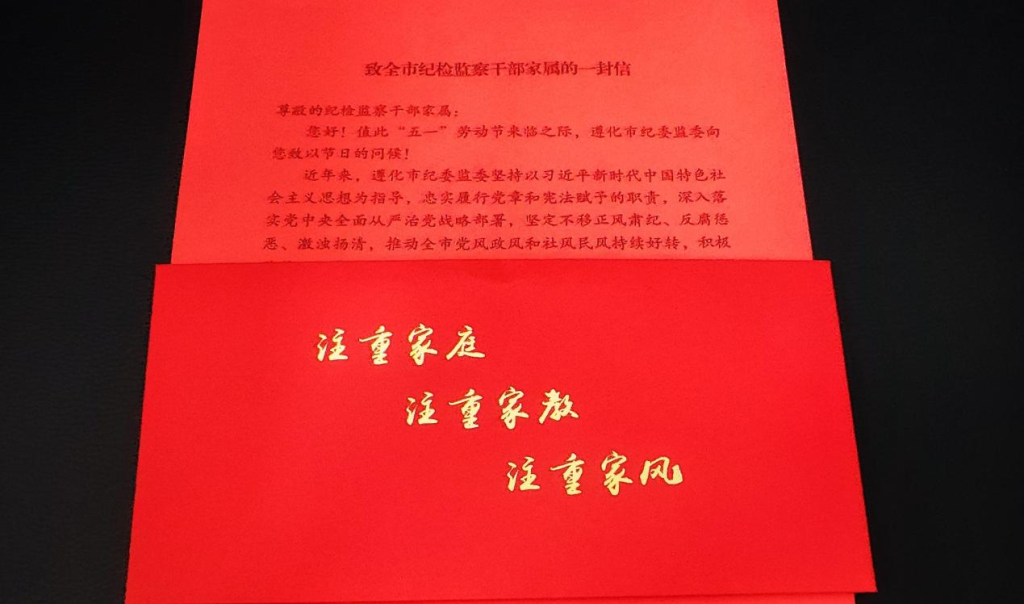 致全市纪检监察干部家属的一封信
尊敬的纪检监察干部家属：
您好！值此“五一”劳动节来临之际，遵化市纪委监委向
您致以节日的问候！
近年来，遵化市纪委监委坚持以习近平新时代中国特色社
会主义思想为指导，忠实履行党章和宪法赋予的职责，深入落
实党中央全面从严治党战略部署，坚定不移正风肃纪、反腐惩
恶、激浊扬清，推动全市党风政风和社风民风持续好转，积极
注重家庭
注重家教
注重家风